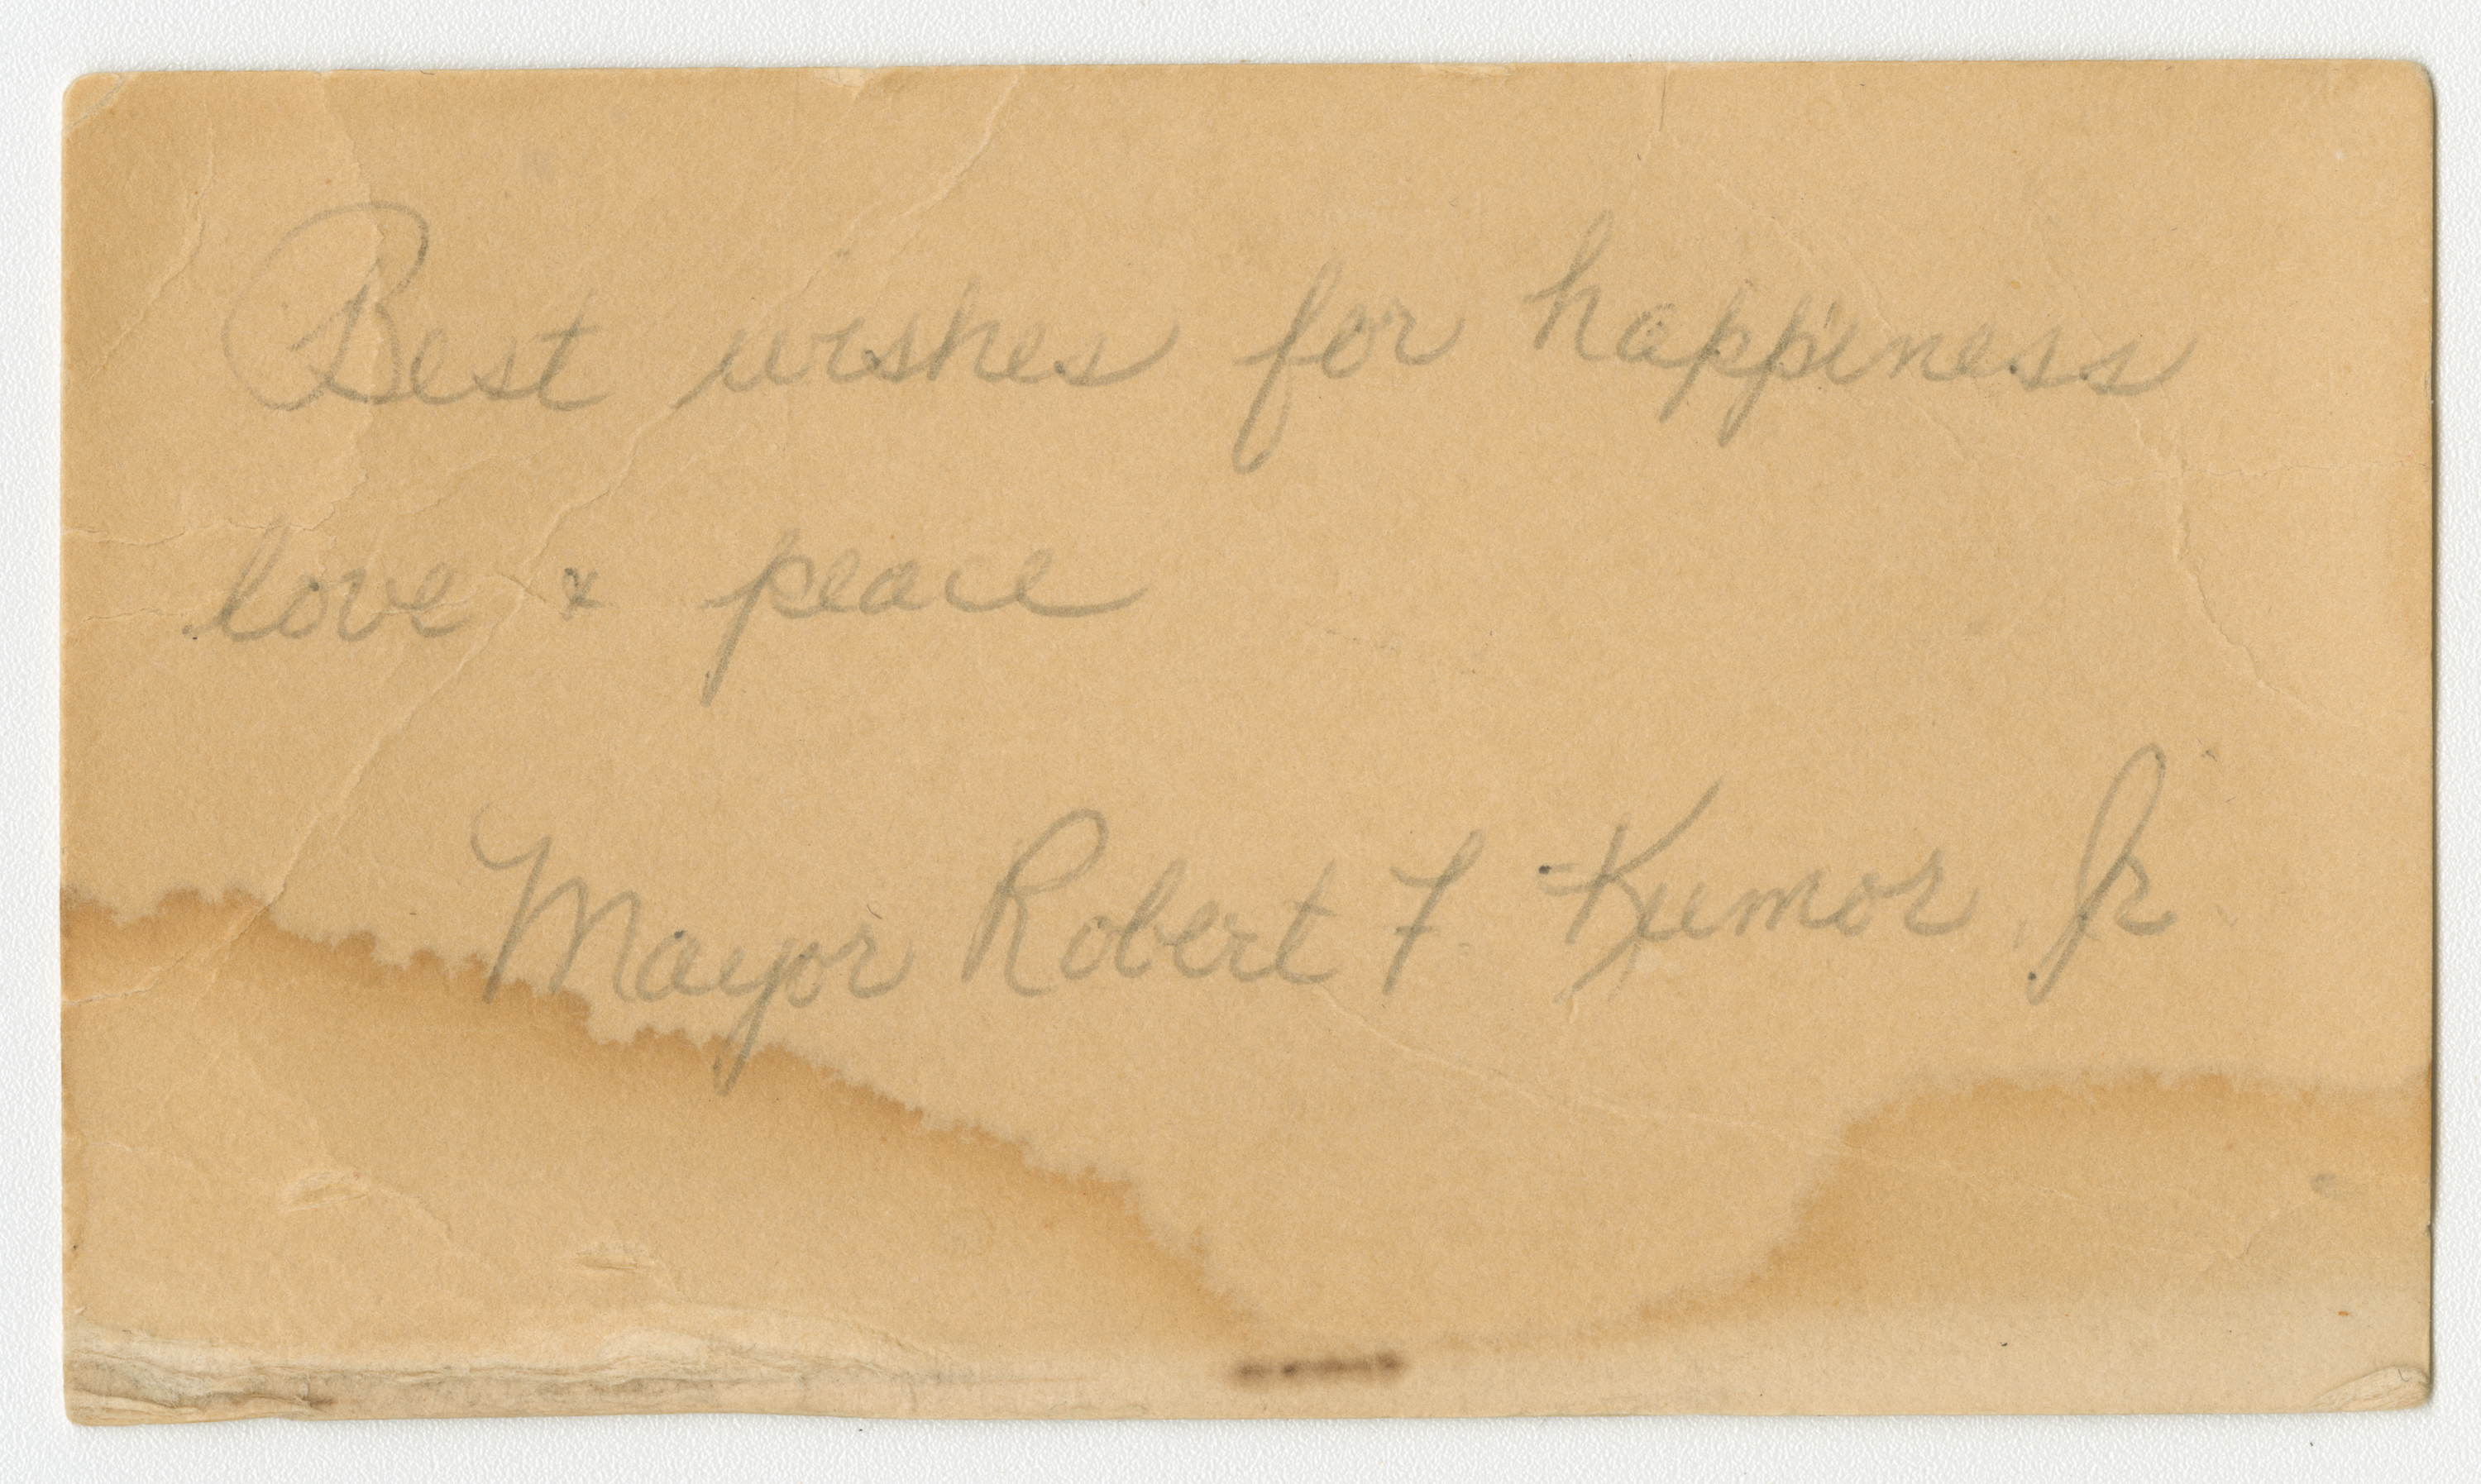 Best wishes for happiness
love & peace
Mayor Robert F Kumor Jr